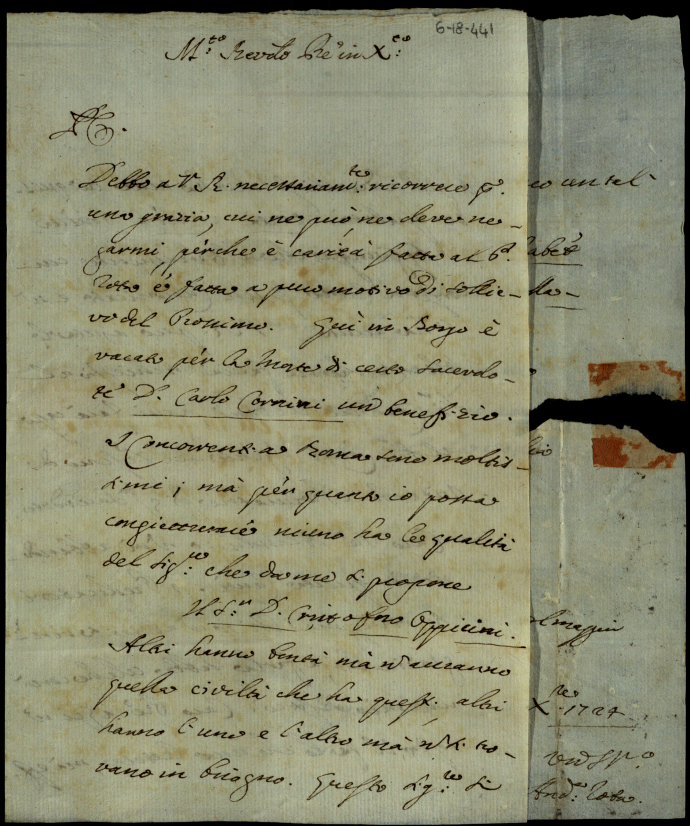 6-18-441
M.to Revdo Pre in X.to
P. C.
Debbo a V. R. necessariam.te ricorrere p.
una grazia, cui ne può ne deve ne-
garmi, perche è carità fatta al P.
Rota è fatta a puro motivo di sollie-
vo del Prossimo. Quì in Borgo è
vacato pér la Morte di certo Sacerdo-
te D. Carlo Cornini un benefizio.
I Concorrenti a Roma sono moltis-
simi; mà pér quanto io possa
congietturare niuno ha le qualità
del Sig.re che da me si propone
Il S.r D. Cristoforo Oppicini.
Altri hanno bontà mà n anno
quella civiltà che ha quest. altri
hanno l'uno e l'altro mà n si tro-
vano in bisogno. Questo Sig.re si
X.re 1727
And. Rota.